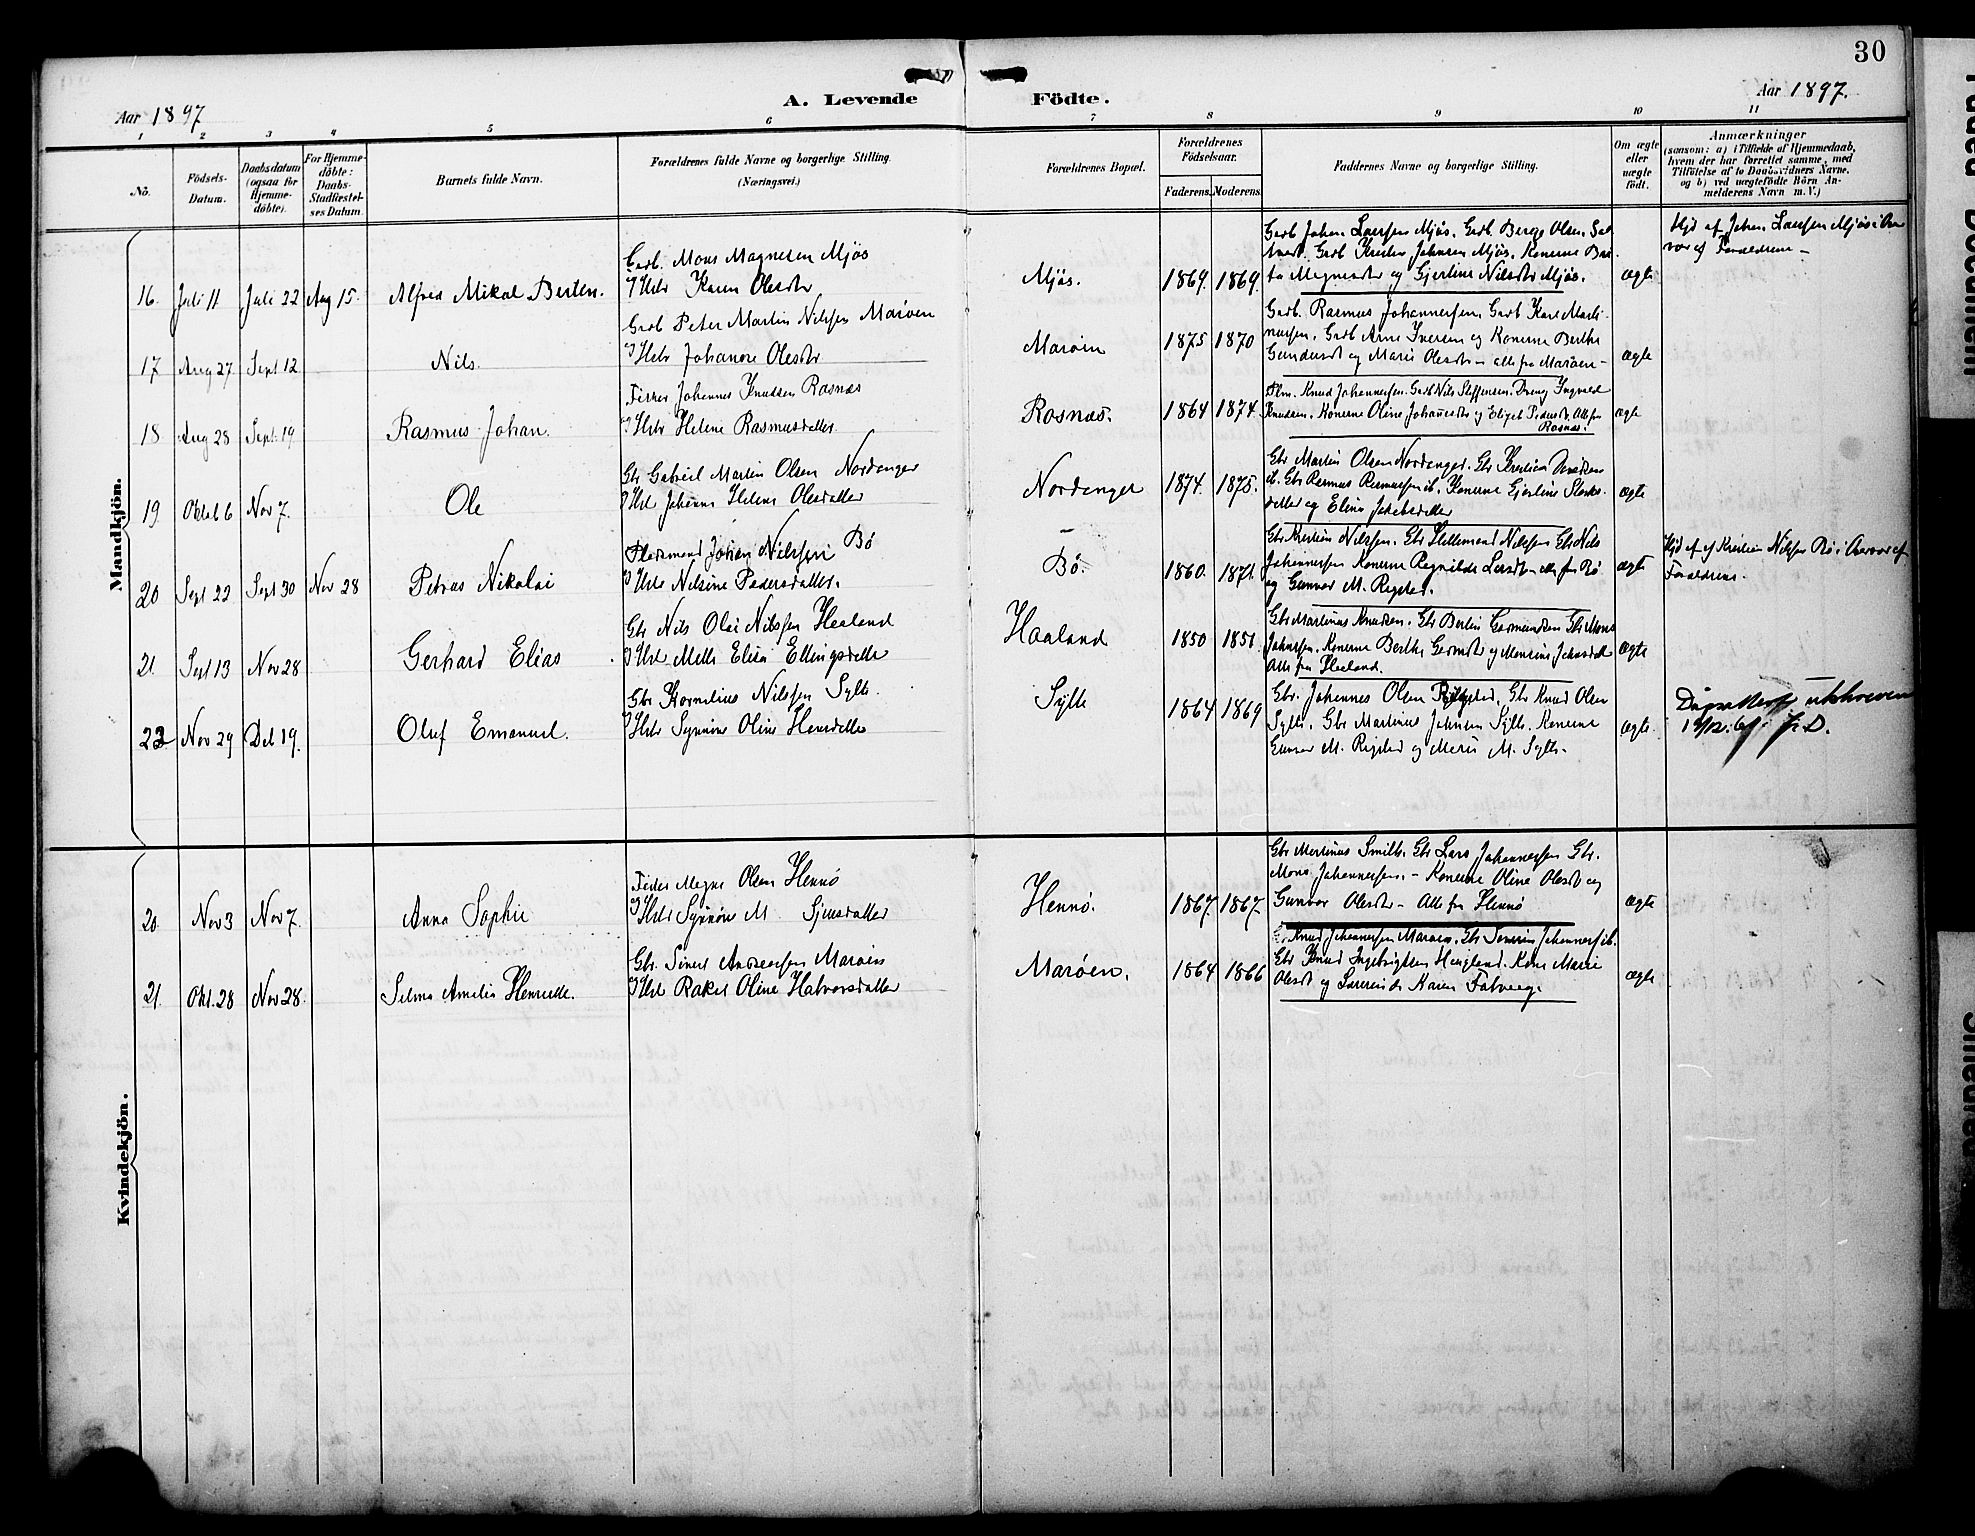 30
Aar 1897
A. Levende
Födte.
Aar 1897.
1 2 3 4 5 6 7 8 9 10 11
No.
Födsels-Datum.
Daabsdatum (ogsaa for Hjemme-döbte).
For Hjemme-döbte: Daabs-Stadfæstel-ses Datum.
Barnets fulde Navn.
Forældrenes fulde Navne og borgerlige Stilling.
(Næringsvei.)
Forældrenes Bopæl.
Forældrenes Födselsaar.
Faderens. Moderens.
Faddernes Navne og borgerlige Stilling.
Om ægte eller uægte födt.
Anmærkninger
(saasom: a) i Tilfælde af Hjemmedaab,
hvem der har forrettet samme, med
Tilföielse af to Daabsvidners Navne,
og b) ved uægtefödte Börn An-
melderens Navn m. V.)
Mandkjön.
16. Juli 11 Juli 22 Aug 15. Alfred Mikal Berten.
Garb. Mons Magnesen Mjøs
Hstr Karen Olesdtr
Mjøs. 1869. 1869.
Garb Johan Larssen Mjøs, Garb. Berge Olsen
Garb Johansen Mjøs, Konerne
Magnesdtr og Gjertine Nilsdtr Mjøs.
ægte
Hjd af Johan Larssen Mjøs i Overvær af Forældrene
17 Aug 27 Sept 12 Nils.
Garb Peter Martin Nilssen Marøen
Hstr Johanne Olesdtr
Marøen 1875 1870
Garb. Rasmus Johannessen, Garb Karl Marti-
nussen, Garb Arne Iversen og Konerne Berthe
Gundersdt og Marie Olesdtr - alle fra Marøen -
ægte
18 Aug 28 Sept. 19 Rasmus Johan.
Fisker Johannes Knudsen Rosnæs
Hstr Helene Rasmusdatter
Rosnæs. 1864 1874.
Knud Johannessen, Garb Nils Steffensen, Dreng Ingvald
Knudsen, Konerne Oline Johannesdtr og Pedersdtr. Alle fra
Rosnæs.
ægte
19 Oktob 6 Nov 7. Ole
Gbr Gabriel Martin Olsen Nordanger
Hstr Johanna Helene Olesdatter
Nordanger 1874. 1875.
Gbr Martin Olsen Nordanger, Gbr Kristian
ib. Gbr Rasmus Rasmussen ib. Konerne Gjertine
datter og Elina Jakobsdatter
ægte
20 Sept 22 Sept 30 Nov 28 Petras Nikolai
Johan Nilssen Bø
Hstr Nilsine Pedersdatter.
Bø. 1860. 1871.
Gbr Kristian Nilssen, Gbr Nilssen Gbr Nils
Johannessen Konerne Ragnilde Larsdtr alle fra Bø
og Gunvor M. Rigstad.
ægte
Hjd af Kristian Nilssen Bø i Overvær af
Forældrene.
21. Sept 13 Nov 28 Gerhard Elias
Gbr Nils Olai Nilssen Haaland
Hstr Elisa Ellingsdatter
Haaland 1850 1851
Gbr Martinus Knudsen, Gbr Bertin Gbr Mons
Johnssen, Konerne Berthe og
Alle fra Haaland.
ægte
22 Nov 29 Deb 19. Oluf Emanuel.
Gbr Kornelius Nilssen Sylte.
Hstr Synnøve Oline Hansdatter
Sylte 1864 1869
Gbr. Johannes Olsen Rigstad, Gbr Knud Olsen
Sylte, Gbr Martinus Johnsen Sylte. Konerne
Gunvor M. Rigstad og Marie M. Sylte.
ægte.
utskreven
J.D.
Kvindekjön.
20. Nov 3 Nov 7. Anna Sophie
Fisker Magne Olsen Hennø
Hstr Synnøve M.
Hennø. 1867. 1867.
Gbr Martinus Smith, Gbr Lars Johannessen Gbr.
Mons Johannessen. - Konerne Oline Olesdt og
Gunvor Olesdtr - Alle fra Hennø
ægte
21. Okt. 28 Nov 28. Selma Amalia Henrikke.
Gbr. Sivert Andreassen Marøen
Hstr Rakel Oline Halvorsdatter
Marøen. 1864 1866
Knud Johannessen Marøen, Gbr Severin Johannessen ib.
Gbr Knud Ingebrigtsen Haugland. Kone Marie
Olesdt og Karen
ægte